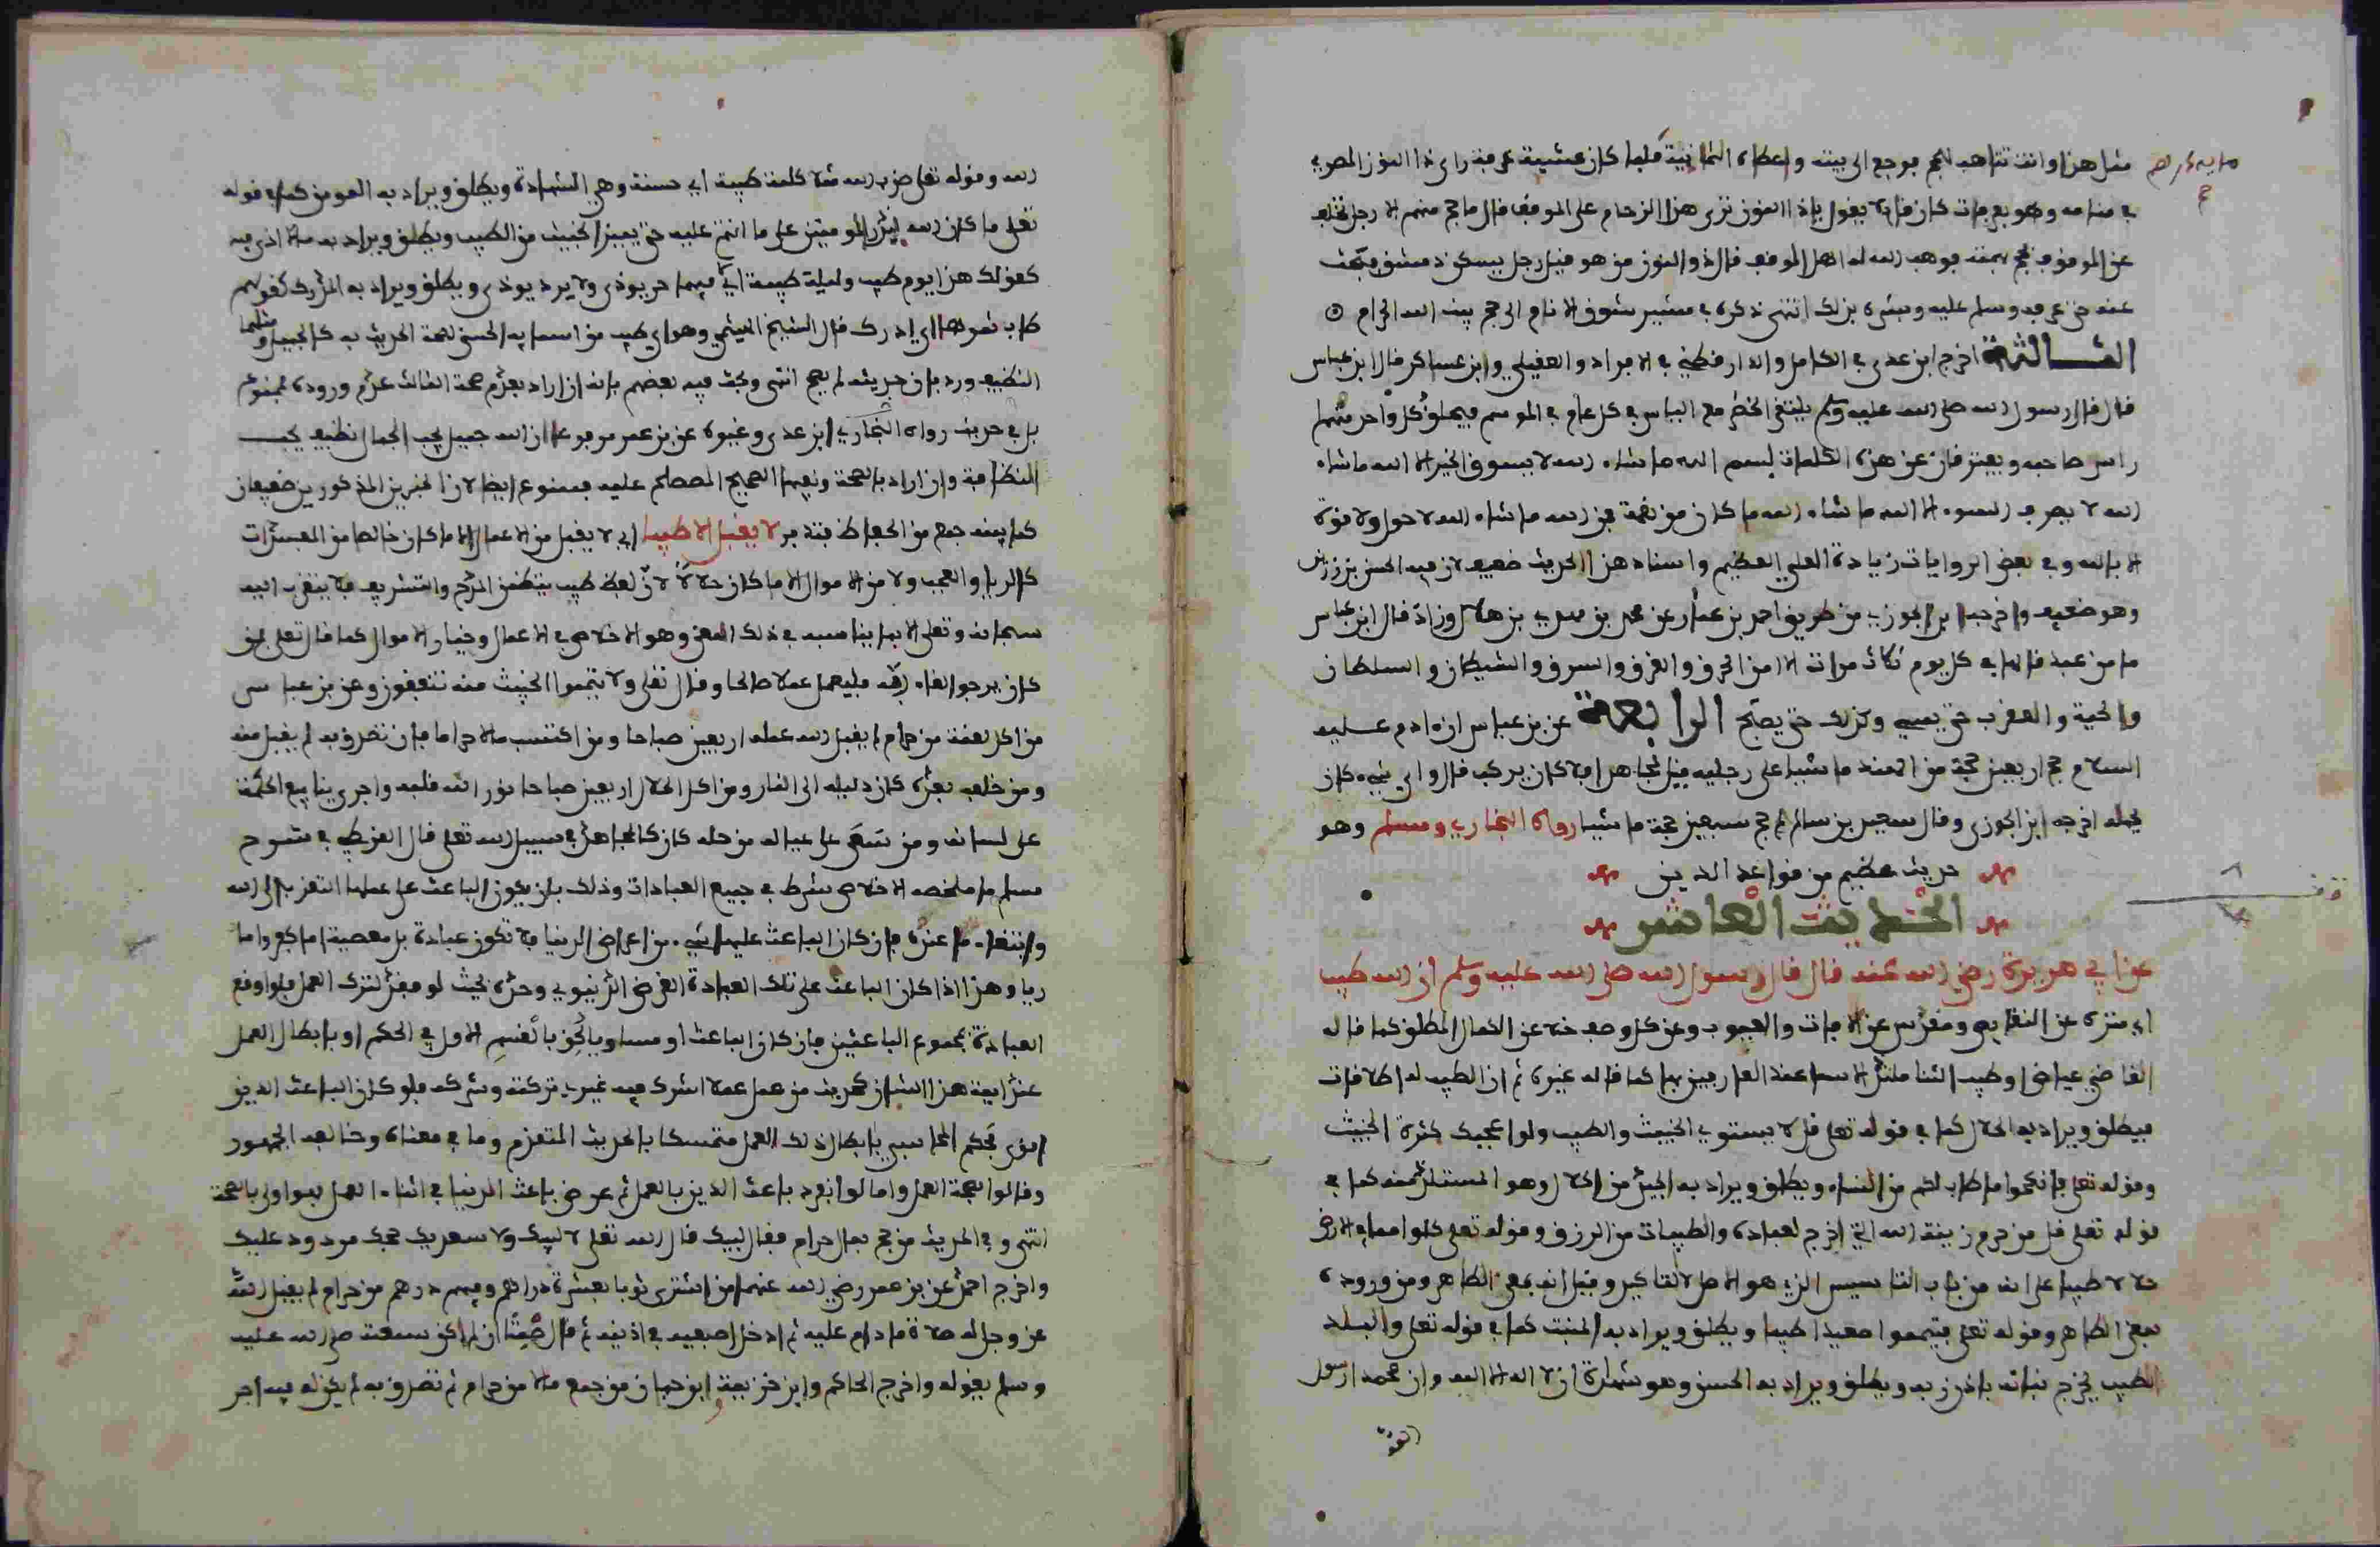 مثل هذا وانت تتاهب للحج فرجع الى بيته واعطاه الثمانية فلما كان عشية عرفة راى ذا النون المصري
في منامه وهو بعرفات كان قائلا يقول ياذا النون ترى هذا الزحام على الموقف قال ما حج منهم الا رجل تخلف
عن الموقف فحج بهمته فوهب الله له اهل الموقف قال ذو النون من هو قيل رجل يسكن دمشق فبحثت
عنه حتى عرفه وسلم عليه وبشره بذلك انتهى ذكره في مشير شوق الانام الى حج بيت الله الحرام
الثالثة اخرج ابن عدي في الكامل والدارقطني في الافراد والعقيلي وابن عساكر قال ابن عباس
قال قال رسول الله صلى الله عليه وسلم يلتقي الخضر مع الياس في كل عام في الموسم فيحلق كل واحد منهما
راس صاحبه ويفترقان عن هذه الكلمات بسم الله ما شاء الله لا يسوق الخير الا الله ما شاء
الله لا يصرف السوء الا الله ما شاء الله ما كان من نعمة فمن الله ما شاء الله لا حول ولا قوة
الا بالله وفي بعض الروايات زيادة العلي العظيم واسناد هذا الحديث ضعيف لان فيه الحسن بن رزين
وهو ضعيف واخرجه ابن الجوزي من طريق احمد بن عمار عن محمد بن مهدي بن هلال وزاد قال ابن عباس
ما من عبد قالها في كل يوم ثلاث مرات الا امن الحرق والغرق والسرق والشيطان والسلطان
والحية والعقرب حتى يمسي وكذلك حتى يصبح الرابعة عن بن عباس ان ادم عليه
السلام حج اربعين حجة من الهند ماشيا على رجليه قيل لمجاهد افلا كان يركب قال واي شيء كان
يحمله اخرجه ابن الجوزي وقال سعيد بن سالم ثم حج سبعين حجة ماشيا رواه البخاري ومسلم وهو
حديث عظيم من قواعد الدين
الحديث العاشر
عن ابي هريرة رضي الله عنه قال قال رسول الله صلى الله عليه وسلم ان الله طيب
اي منزه عن النقايص ومقدس عن الافات والعيوب وعن كل وصف خلا عن الكمال المطلق كما قاله
القاضي عياض او طيب الثنا مستلذ الاسما عند العارفين بها كما قاله غيره ثم ان الطيب له اطلاقات
فيطلق ويراد به الحلال كما في قوله تعلى قل لا يستوي الخبيث والطيب ولو اعجبك كثرة الخبيث
وقوله تعلى فانكحوا ما طاب لكم من النساء ويطلق ويراد به الجيد من الحلال وهو المستلذ منه كما في
قوله تعلى قل من حرم زينة الله التي اخرج لعباده والطيبات من الرزق وقوله تعلى كلوا مما في الارض
حلالا طيبا على انه من باب التاسيس الذي هو الاصل لا التاكيد وقيل انه بمعنى الطاهر ومن وروده
بمعنى الطاهر قوله تعلى فتيمموا صعيدا طيبا ويطلق ويراد به المنبت كما في قوله تعلى والبلد
الطيب يخرج نباته باذن ربه ويطلق ويراد به الحسن وهو شهادة ان لا اله الا الله وان محمدا رسول
الله وقوله تعلى ضرب الله مثلا كلمة طيبة اي حسنة وهي الشهادة ويطلق ويراد به المومن كما في قوله
تعلى ما كان الله ليذر المومنين على ما انتم عليه حتى يميز الخبيث من الطيب ويطلق ويراد به ما لا اذى فيه
كقولك هذا يوم طيب وليلة طيبة اي فيهما حر يوذى ولا برد يوذى ويطلق ويراد به المدرك كقولهم
طاب ثمرها اي ادرك قال الشيخ الهيثمي وهو اي طيب من اسمايه الحسنى لصحة الحديث به كالجميل ومثلهما
النظيف ورد بان حديثه لم يصح انتهى وبحث فيه بعضهم بانه ان اراد بعدم صحة الثالث عدم وروده فممنوع
بل في حديث رواه البخاري ابن عدي وغيره عن بن عمر مرفوعا ان الله جميل يحب الجمال نظيف يحب
النظافة وان اراد بالصحة ونفيها الصحيح المصطلح عليه فممنوع ايضا لان الخبرين المذكورين ضعيفان
كما بينه جمع من الحفاظ فتدبر لا يقبل الا طيبا اي لا يقبل من الاعمال الا ما كان خالصا من المفسدات
كالريا والعجب ولا من الاموال الا ما كان حلالا لان لفظ طيب يتضمن المدح والتشريف فلا يتقرب اليه
سبحانه وتعلى الا بما يناسبه في ذلك المعنى وهو الاخلاص في الاعمال وخيار الاموال كما قال تعلى فمن
كان يرجوا لقاء ربه فليعمل عملا صالحا وقال تعلى ولا تيمموا الخبيث منه تنفقون وعن بن عباس
من اكل لقمة من حرام لم يقبل الله عمله اربعين صباحا ومن اكتسب مالا حراما فان تصدق به لم يقبل منه
ومن خلفه بعده كان دليله الى النار ومن اكل الحلال اربعين صباحا نور الله قلبه واجرى ينابيع الحكمة
على لسانه ومن سعى على عياله من حله كان كالمجاهد في سبيل الله تعلى قال القرطبي في شرح
مسلم ما ملخصه الاخلاص شرط في جميع العبادات وذلك بان يكون الباعث على عملها التقرب الى الله
وابتغاء ما عنده فان كان الباعث عليها شيء من اعراض الدنيا فلا تكون عبادة بل معصية اما كفر واما
ريا وهذا اذا كان الباعث على تلك العبادة الغرض الدنيوي وحده بحيث لو فقد لترك العمل فلو اوقع
العبادة بمجموع الباعثين فان كان الباعث او مساويا لحق بالقسم الاول في الحكم او بابطال العمل
عند ايمة هذا الشان لحديث من عمل عملا اشرك فيه غيري تركته وشركه فلو كان الباعث الدين
اقوى فحكم المحاسبي بابطال ذلك العمل متمسكا بالحديث المتقدم وما في معناه وخالفه الجمهور
وقالوا بصحة العمل واما لو انفرد باعث الدين بالعمل ثم عرض باعث الدنيا في اثناء العمل فهو اولى بالصحة
انتهى وفي الحديث من حج بمال حرام فقال لبيك قال الله تعلى لا لبيك ولا سعديك حجك مردود عليك
واخرج احمد عن بن عمر رضي الله عنهما من اشترى ثوبا بعشرة دراهم وفيهم درهم من حرام لم يقبل الله
عز وجل له صلاة ما دام عليه ثم ادخل اصبعيه في اذنيه ثم قال صمتا ان لم اكن سمعته صلى الله عليه
وسلم يقوله واخرج الحاكم وابن خزيمة وابن حبان من جمع مالا من حرام ثم تصدق به لم يكن له فيه اجر